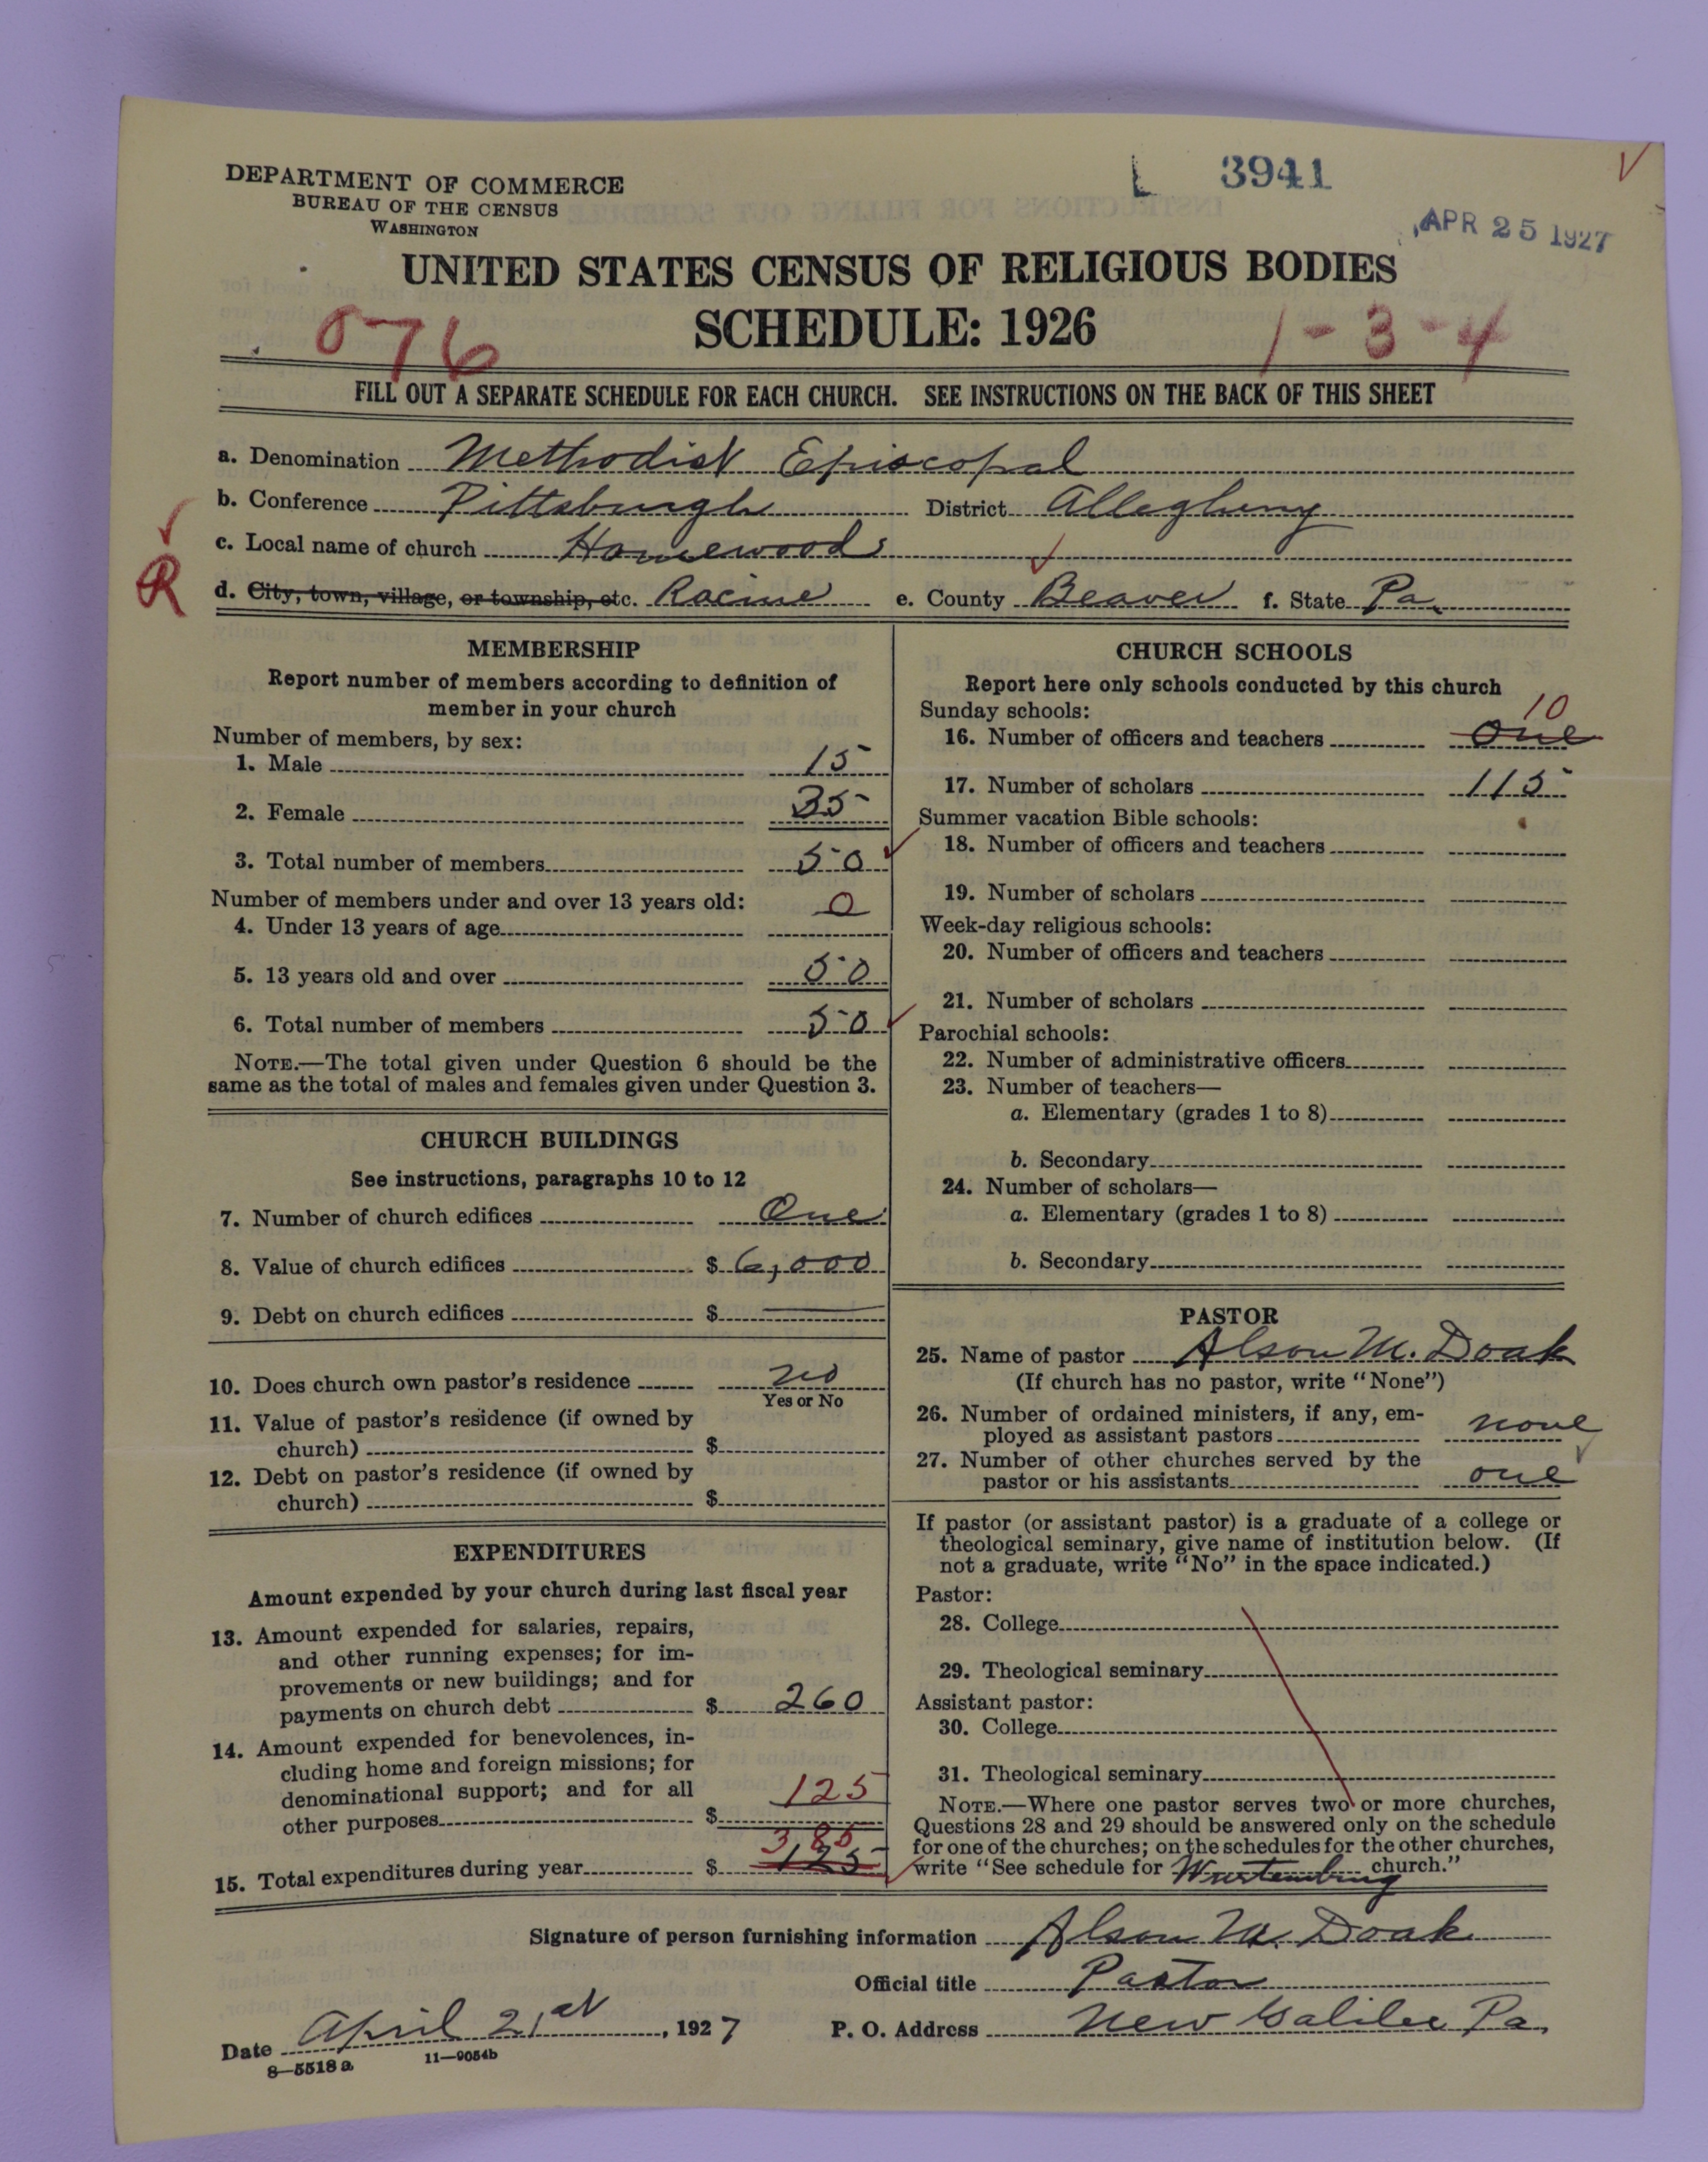 DEPARTMENT OF COMMERCE
BUREAU OF THE CENSUS
WASHINGTON
L 3941
APR 25 1927
UNITED STATES CENSUS OF RELIGIOUS BODIES
SCHEDULE: 1926
076
1-3-4
FILL OUT A SEPARATE SCHEDULE FOR EACH CHURCH. SEE INSTRUCTIONS ON THE BACK OF THIS SHEET
a. Denomination Methodist Episcopal
b. Conference Pittsburgh District Allegheny
c. Local name of church Homewood
R
d. City, town, village, or township, etc. Racine e. County Beaver f. State Pa.
MEMBERSHIP
Report number of members according to definition of
member in your church
Number of members, by sex:
1. Male 15
2. Female 35
3. Total number of members 50
Number of members under and over 13 years old:
4. Under 13 years of age 0
5. 13 years old and over 50
6. Total number of members 50
NOTE.—The total given under Question 6 should be the
same as the total of males and females given under Question 3.
CHURCH BUILDINGS
See instructions, paragraphs 10 to 12
7. Number of church edifices One
8. Value of church edifices $ 6,000
9. Debt on church edifices $ —
10. Does church own pastor's residence no
Yes or No
11. Value of pastor's residence (if owned by
church) $
12. Debt on pastor's residence (if owned by
church) $
EXPENDITURES
Amount expended by your church during last fiscal year
13. Amount expended for salaries, repairs,
and other running expenses; for im-
provements or new buildings; and for
payments on church debt $ 260
14. Amount expended for benevolences, in-
cluding home and foreign missions; for
denominational support; and for all
other purposes $ 125
385
15. Total expenditures during year $ 125
CHURCH SCHOOLS
Report here only schools conducted by this church
Sunday schools:
10
16. Number of officers and teachers One
17. Number of scholars 115
Summer vacation Bible schools:
18. Number of officers and teachers
19. Number of scholars
Week-day religious schools:
20. Number of officers and teachers
21. Number of scholars
Parochial schools:
22. Number of administrative officers
23. Number of teachers—
a. Elementary (grades 1 to 8)
b. Secondary
24. Number of scholars—
a. Elementary (grades 1 to 8)
b. Secondary
PASTOR
25. Name of pastor Alson M. Doak
(If church has no pastor, write "None")
26. Number of ordained ministers, if any, em-
ployed as assistant pastors none
27. Number of other churches served by the
pastor or his assistants one
If pastor (or assistant pastor) is a graduate of a college or
theological seminary, give name of institution below. (If
not a graduate, write "No" in the space indicated.)
Pastor:
28. College
29. Theological seminary
Assistant pastor:
30. College
31. Theological seminary
NOTE.—Where one pastor serves two or more churches,
Questions 28 and 29 should be answered only on the schedule
for one of the churches; on the schedules for the other churches,
write "See schedule for Wurtemburg church."
Signature of person furnishing information Alson M. Doak
Official title Pastor
Date April 21st, 1927 P. O. Address New Galilee Pa.
8—5518 a 11—9054b